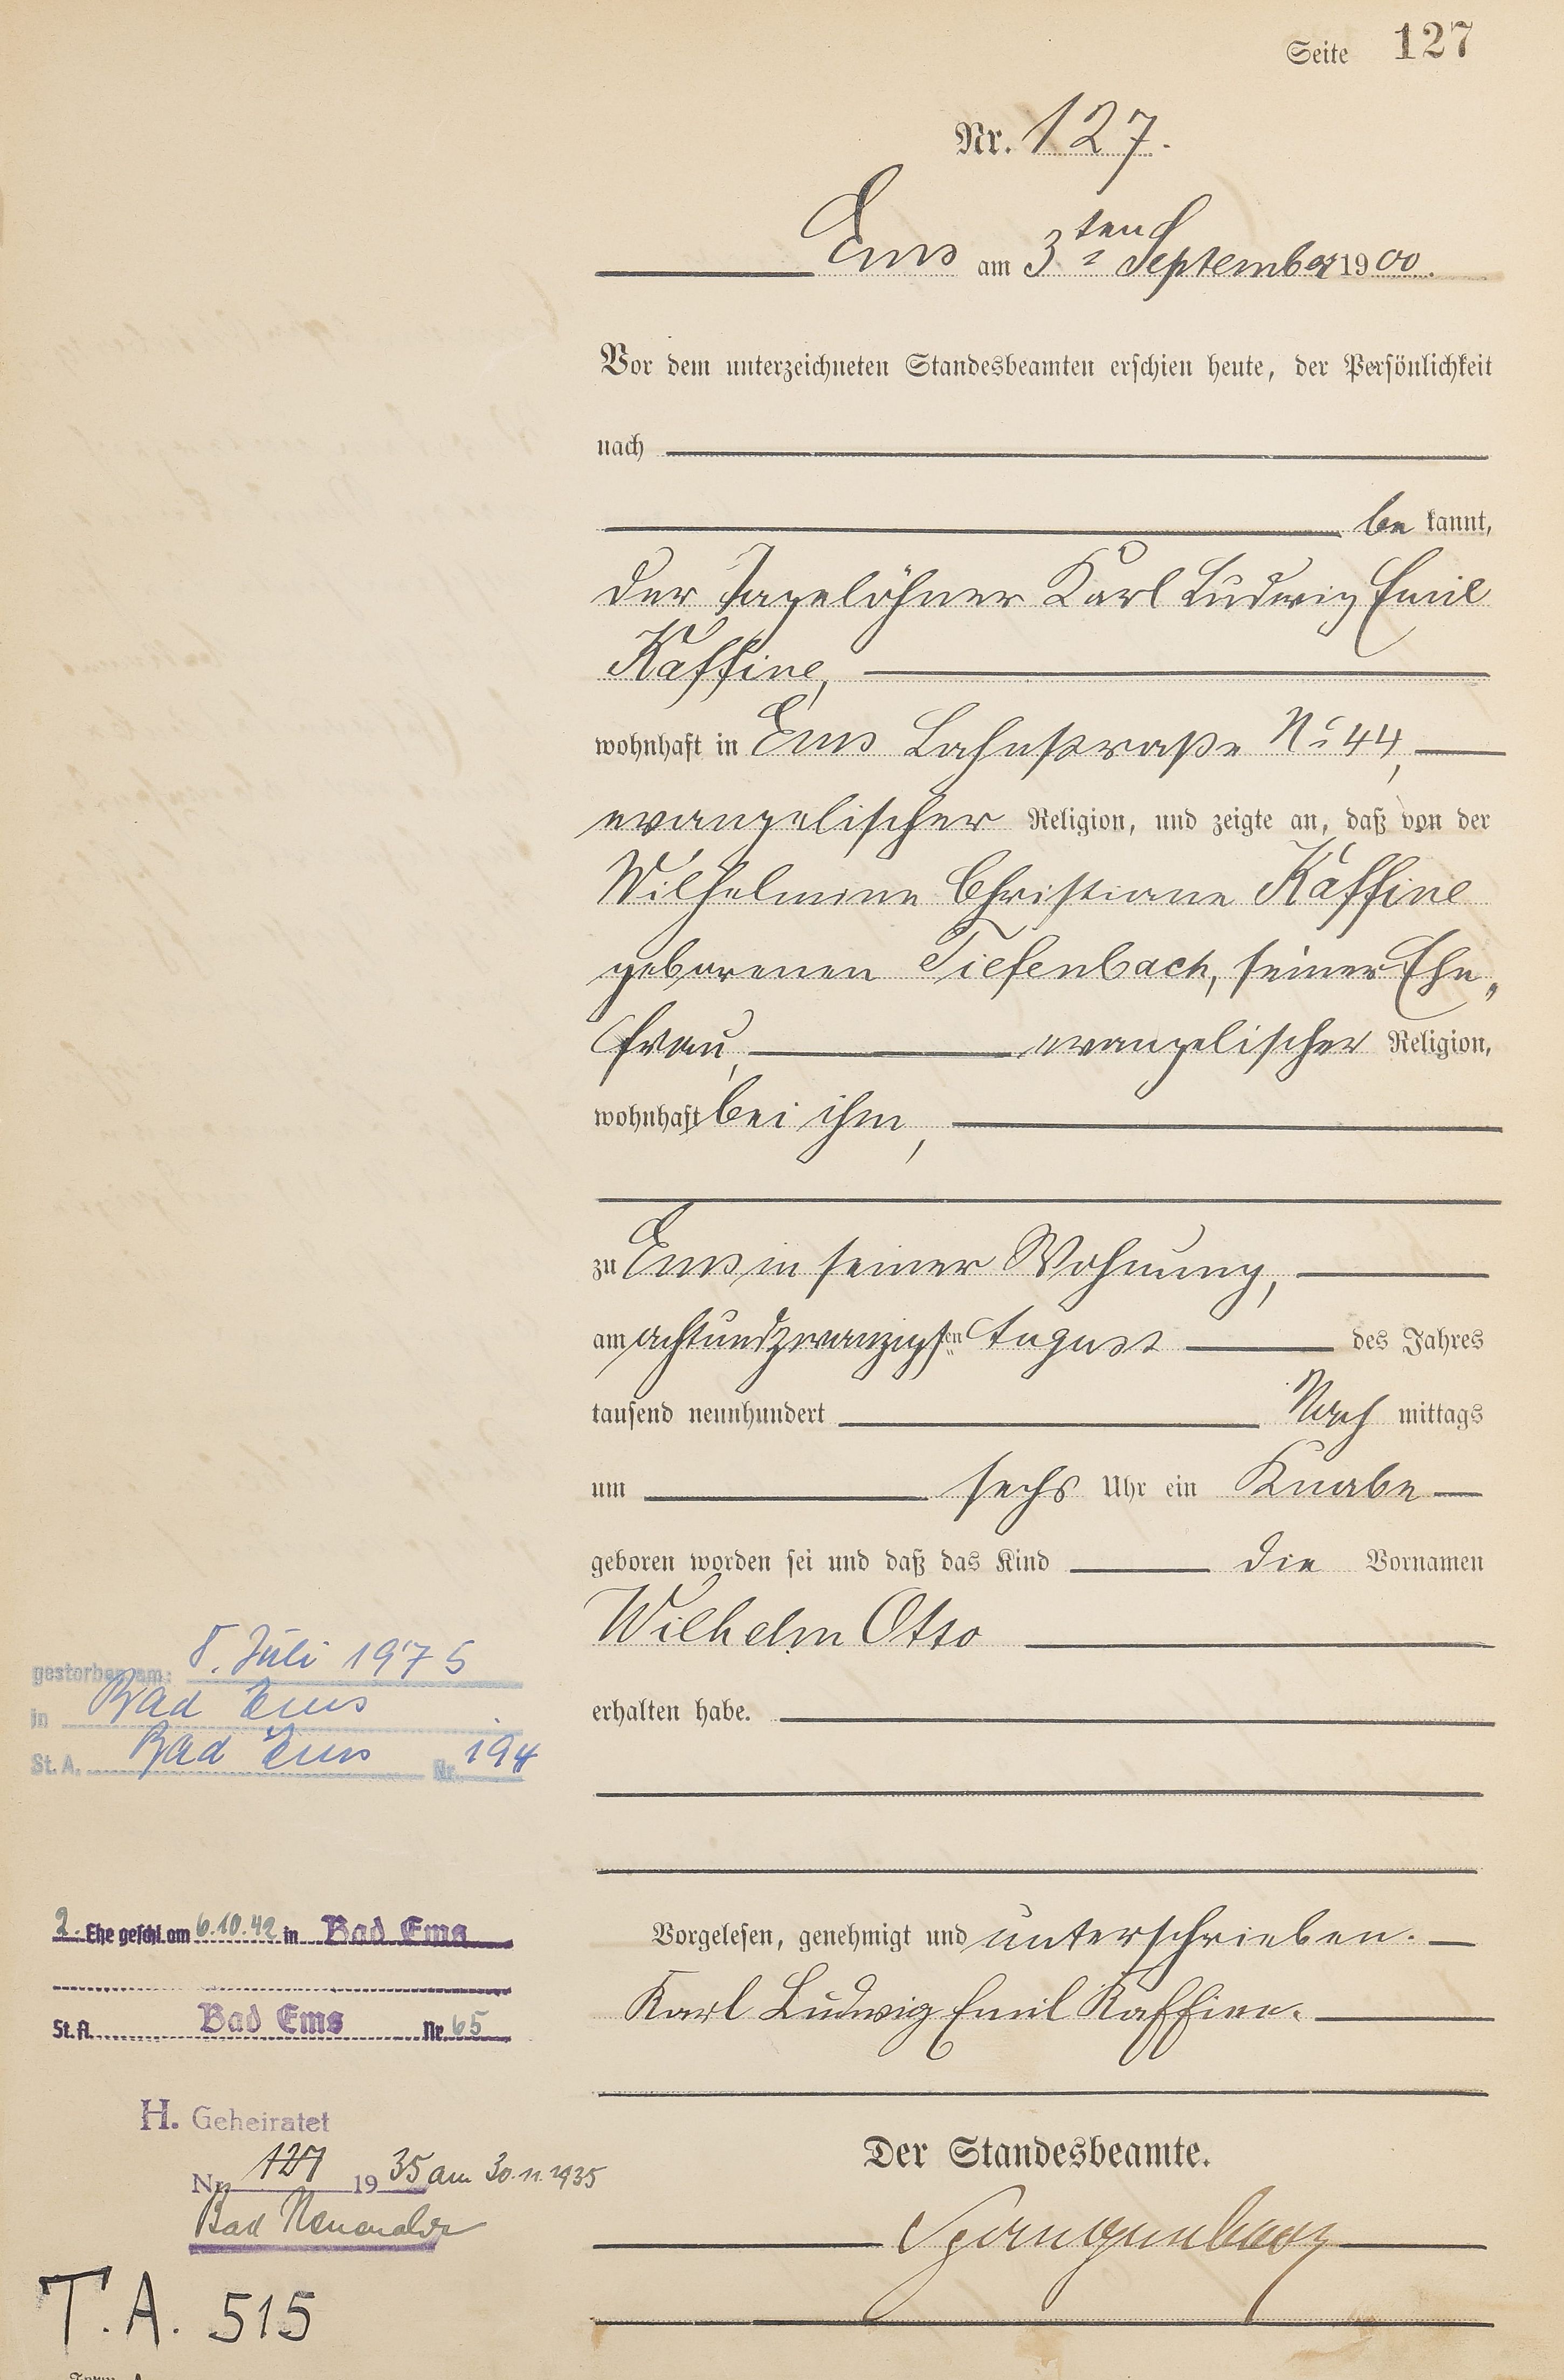 Seite 127
Nr. 127.
Ems am 3ten September 1900.
Vor dem unterzeichneten Standesbeamten erschien heute, der Persönlichkeit
nach
be kannt,
der Tagelöhner Karl Ludwig Emil
Kaffine,
wohnhaft in Ems Lahnstraße No 44,
evangelischer Religion, und zeigte an, daß von der
Wilhelmine Christiane Kaffine
geborenen Tiefenbach, seiner Ehe„
frau, evangelischer Religion,
wohnhaft bei ihm,
zu Ems in seiner Wohnung,
am achtundzwanzigsten August des Jahres
tausend neunhundert Nach mittags
um sechs Uhr ein Knabe
geboren worden sei und daß das Kind die Vornamen
Wilhelm Otto
erhalten habe.
Vorgelesen, genehmigt und unterschrieben.
Karl Ludwig Emil Kaffine.
Der Standesbeamte.
gestorben am: 8. Juli 1975
in Bad Ems
St. A. Bad Ems Nr. 194
2. Ehe geschl. am 6.10.42 in Bad Ems
St. A. Bad Ems Nr. 65
H. Geheiratet
Nr. 127 1935 am 30.11.1935
Bad
T.A. 515